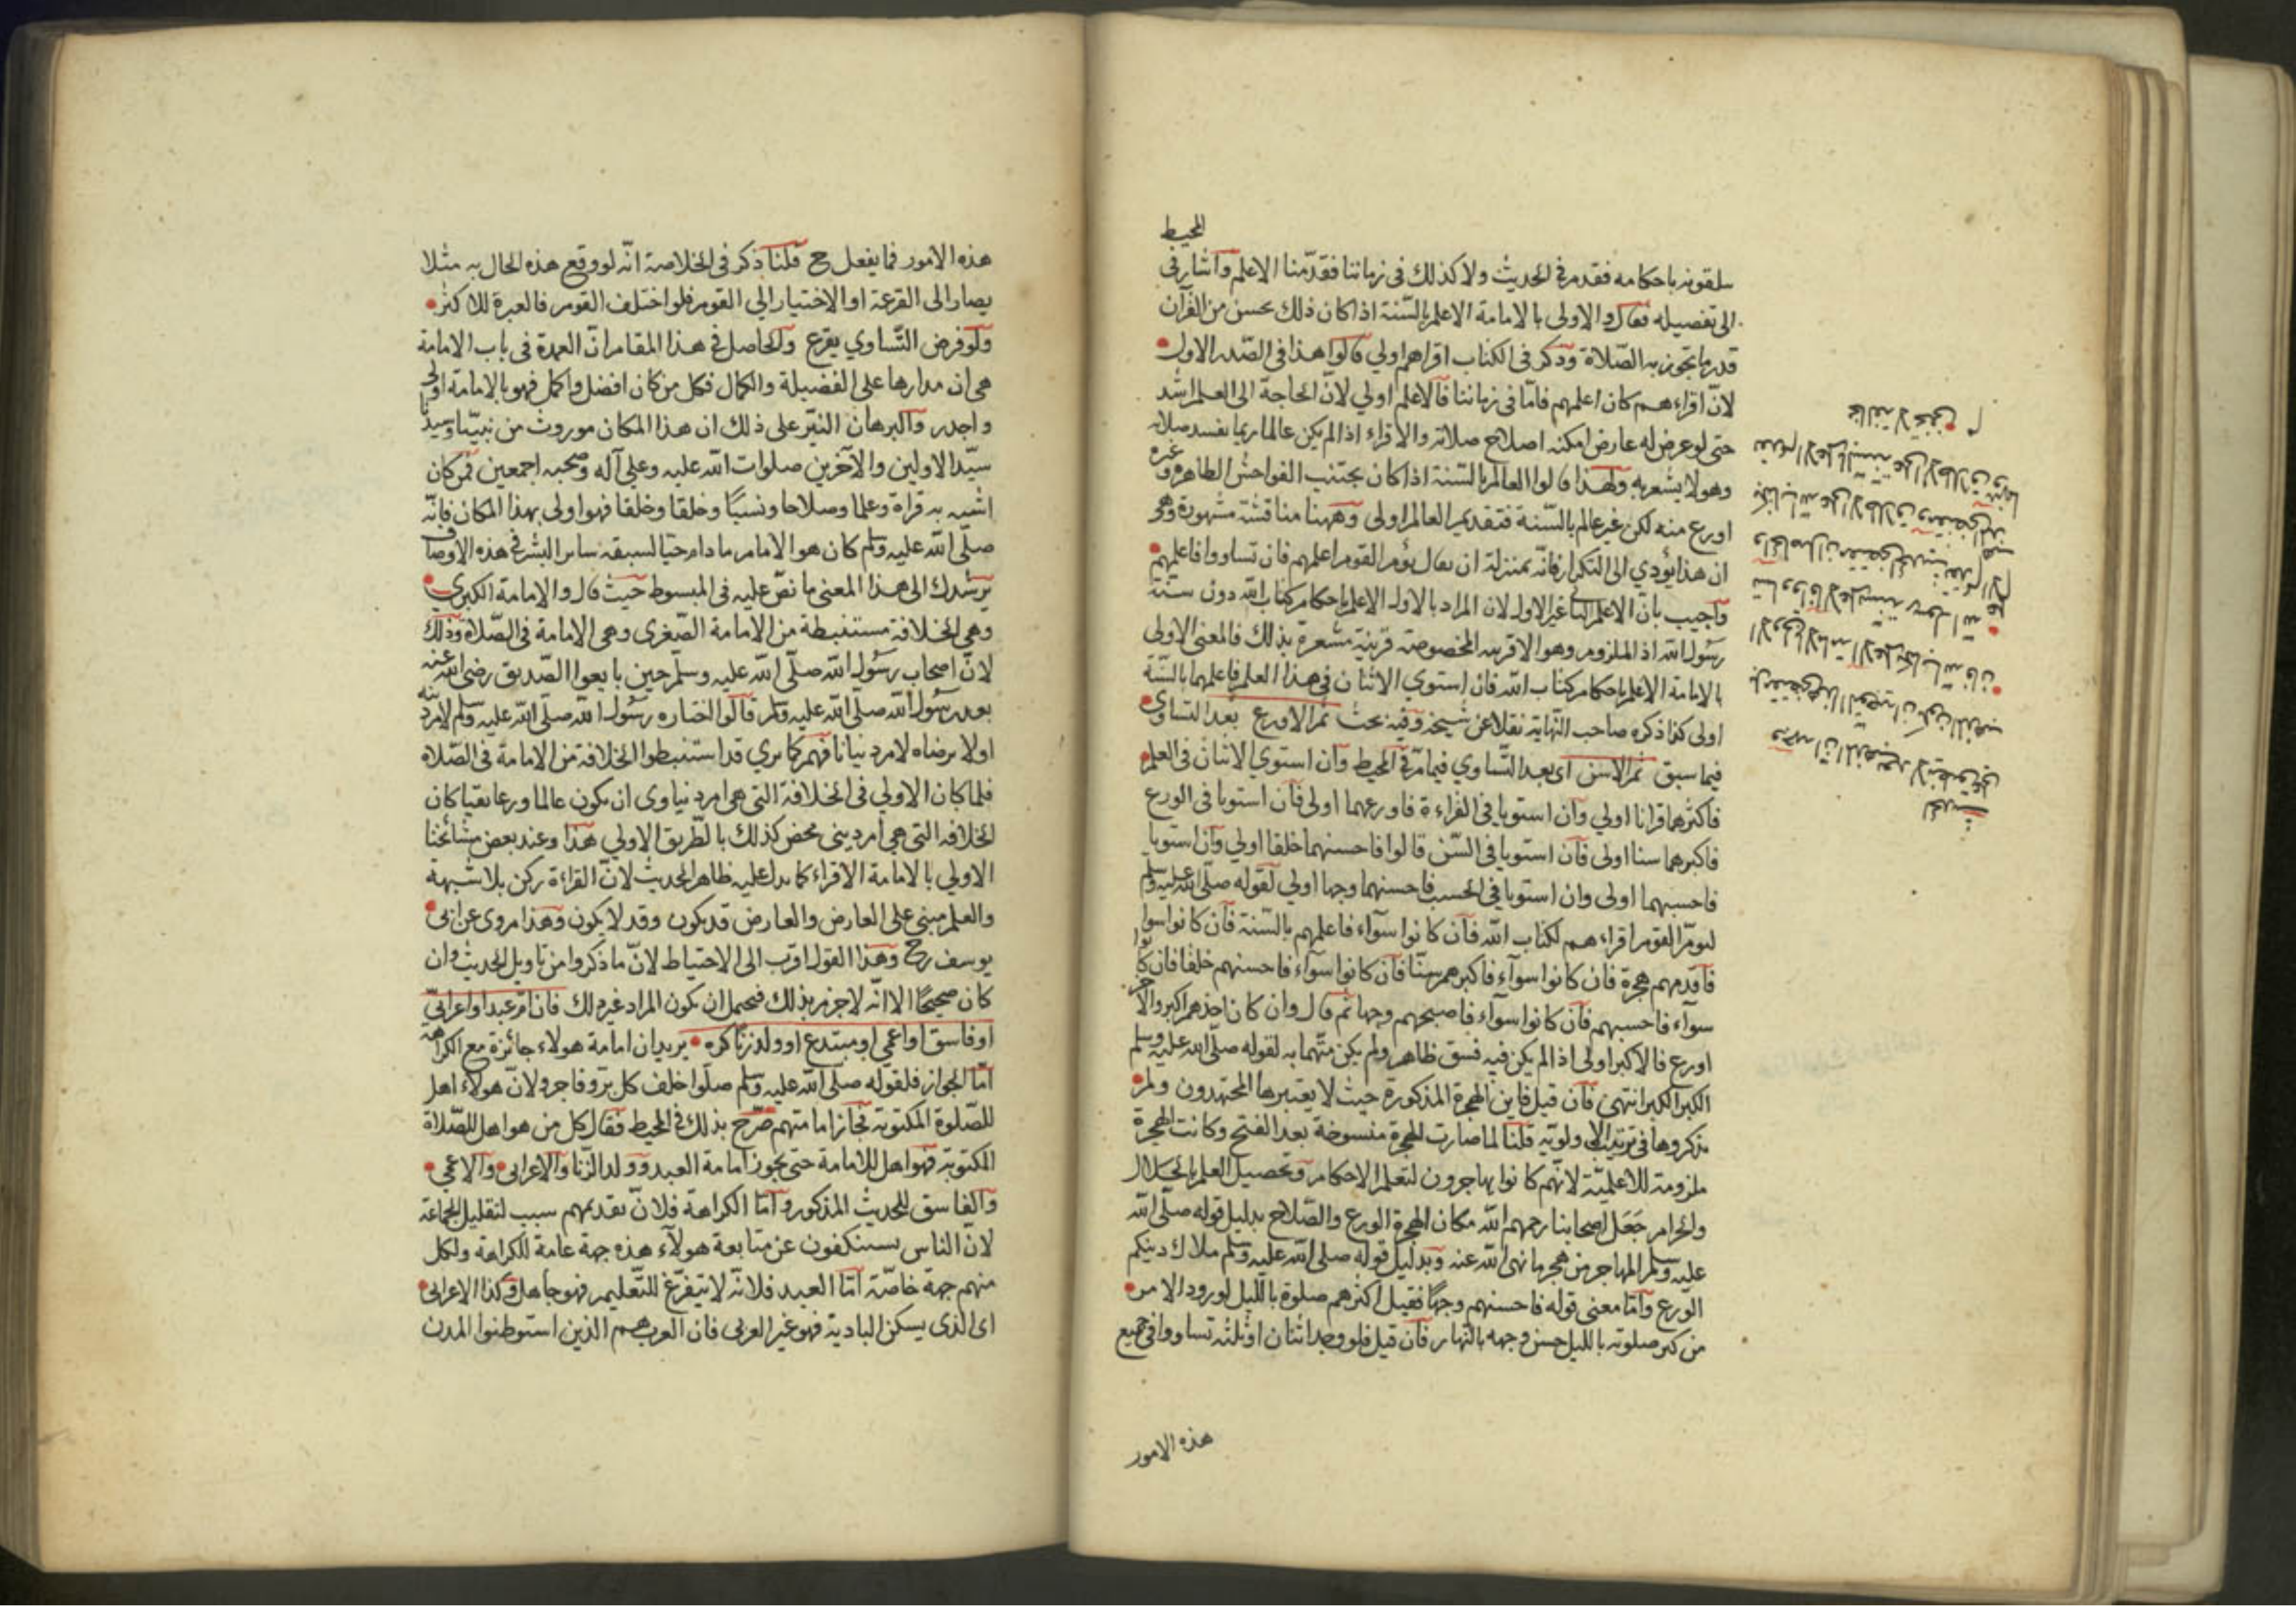 المحيط
يتلقونه باحكامه فقدم في الحديث ولا كذلك في زماننا فقدّمنا الاعلم واشار في
الى تفصيله فقال والاولى بالامامة الاعلم بالسّنة اذا كان ذلك يحسن من القرآن
قدر ما تجوز به الصّلاة وذكر فى الكتاب اقراهم اولي قالوا هذا فى الصّدر الاول
لانّ اقراءهم كان اعلمهم فامّا في زماننا فالاعلم اولي لانّ الحاجة الى العلم اشد
حتى لو عرض له عارض امكنه اصلاح صلاته والاقراء اذا لم يكن عالما ربما تفسد صلاته
وهو لا يشعر به ولهذا قالوا العالم بالسّنة اذا كان يجتنب الفواحش الظاهرة وغيره
اورع منه لكن غير عالم بالسّنة فتقديم العالم اولى وههنا مناقشة مشهورة وهو
ان هذا يؤدي الى التكرار فانّه بمنزلة ان يقال يؤم القوم اعلمهم فان تساووا فاعلمهم
واجيب بان الاعلم الثاني غير الاول لان المراد بالاول الاعلم باحكام كتاب الله دون سنّة
رسول الله اذ الملزوم وهو الاقربية المخصوصة قرينة مشعرة بذلك فالمعنى الاولى
بالامامة الاعلم باحكام كتاب الله فان استوي الاثنان في هذا العلم فاعلمهما بالسّنة
اولى كذا ذكره صاحب النّهاية نقلا عن شيخه وفيه بحث ثم الاورع بعد التساوي
فيما سبق ثم الاسن اى بعد التّساوي فيما مرّ في المحيط وان استوي الاثنان فى العلم
فاكثرهما قرانا اولي وان استويا في القراءة فاورعهما اولى فان استويا فى الورع
فاكبرهما سنا اولى فان استويا فى السّن قالوا فاحسنهما خلقا اولي وان استويا
فاحسبهما اولى وان استويا في الحسب فاحسنهما وجها اولي لقوله صلّى الله عليه وسلم
ليومّ القوم اقراءهم لكتاب الله فان كانوا سوآء فاعلمهم بالسّنة فان كانوا سوا
فاقدمهم هجرة فان كانوا سوآء فاكبرهم سنّا فان كانوا سوآء فاحسنهم خلقا فان كانوا
سوآء فاحسبهم فان كانوا سوآء فاصبحهم وجها ثم قال وان كان احدهم اكبر والاخر
اورع فالاكبر اولى اذا لم يكن فيه فسق ظاهر ولم يكن متّهما به لقوله صلّى الله عليه وسلم
الكبر الكبر انتهى فان قيل فاين الهجرة المذكورة حيث لا يعتبرها المجتهدون ولم
يذكروها في ترتيب الاولويّة قلنا لما صارت الهجرة منسوخة بعد الفتح وكانت الهجرة
ملزومة للاعلميّة لانّهم كانوا يهاجرون لتعلم الاحكام وتحصيل العلم بالحلال
والحرام جعل اصحابنا رحمهم الله مكان الهجرة الورع والصّلاح بدليل قوله صلّى الله
عليه وسلم المهاجر من هجر ما نهى الله عنه وبدليل قوله صلى الله عليه وسلم ملاك دينكم
الورع وامّا معنى قوله فاحسنهم وجهًا فقيل اكثرهم صلوة بالليل لورود الامر
من كثر صلوته بالليل حسن وجهه بالنّهار فان قيل فلو وجد اثنان او ثلثة تساووا في جميع
هذه الامور
هذه الامور فما يفعل ح قلنا ذكر فى الخلاصة انّه لو وقع هذه الحال به مثلا
يصار الى القرعة او الاختيار الي القوم فلو اختلف القوم فالعبرة للاكثر
ولو فرض التّساوي يقرع والحاصل في هذا المقام ان العمدة فى باب الامامة
هى ان مدارها على الفضيلة والكمال فكل من كان افضل واكمل فهو بالامامة اولى
واجدر والبرهان النيّر على ذلك ان هذا المكان موروث من نبيّنا وسيدنا
سيّد الاولين والآخرين صلوات الله عليه وعلى آله وصحبه اجمعين فمن كان
اشبه به قراة وعلما وصلاحا ونسبًا وخلقا وخلقا فهو اولى بهذا المكان فانّه
صلّى الله عليه وسلم كان هو الامام ما دام حيّا لسبقه سائر البشر في هذه الاوصاف
يرشدك الى هذا المعنى ما نصّ عليه فى المبسوط حيث قال والامامة الكبرى
وهي الخلافة مستنبطة من الامامة الصّغرى وهى الامامة فى الصّلاة وذلك
لانّ اصحاب رسول الله صلّى الله عليه وسلّم حين بايعوا الصّديق رضى الله عنه
بعد رسول الله صلّى الله عليه وسلم قالوا اختاره رسول الله صلّى الله عليه وسلم لامر دينه
اولا نرضاه لامر دنيانا فهم كما ترى قد استنبطوا الخلافة من الامامة فى الصّلاة
فلما كان الاولي فى الخلافة التى هى امر دنياوى ان يكون عالما ورعا تقيّا كان
الخلافة التى هى امر دينى محض كذلك بالطّريق الاولي هذا وعند بعض مشائخنا
الاولي بالامامة الاقراء كما يدل عليه ظاهر الحديث لانّ القراءة ركن بلا شبهة
والعلم مبنى على العارض والعارض قد يكون وقد لا يكون وهذا مروى عن ابى
يوسف رح وهذا القول اقرب الى الاحتياط لانّ ما ذكروا من تاويل الحديث وان
كان صحيحًا الا انّه لا جزم بذلك فيحمل ان يكون المراد غير ذلك فان امّ عبد او اعرابىّ
او فاسق او اعمى او مبتدع او ولد زنًا كره يريد ان امامة هولاء جائزة مع الكراهة
امّا الجواز فلقوله صلّى الله عليه وسلم صلّوا خلف كل برّ وفاجر ولانّ هولاء اهل
للصّلوة المكتوبة فجاز امامتهم صرّح بذلك في المحيط فقال كل من هو اهل للصّلاة
المكتوبة فهو اهل للامامة حتى يجوز امامة العبد وولد الزّنا والاعرابى والاعمى
والفاسق للحديث المذكور وامّا الكراهة فلانّ تقديمهم سبب لتقليل الجماعة
لانّ الناس يستنكفون عن متابعة هولآء هذه جهة عامة للكراهة ولكل
منهم جهة خاصّة امّا العبد فلانّه لا يتفرّغ للتّعليم فهو جاهل وكذا الاعرابى
اى الذى يسكن البادية فهو غير العربى فان العرب هم الذين استوطنوا المدن